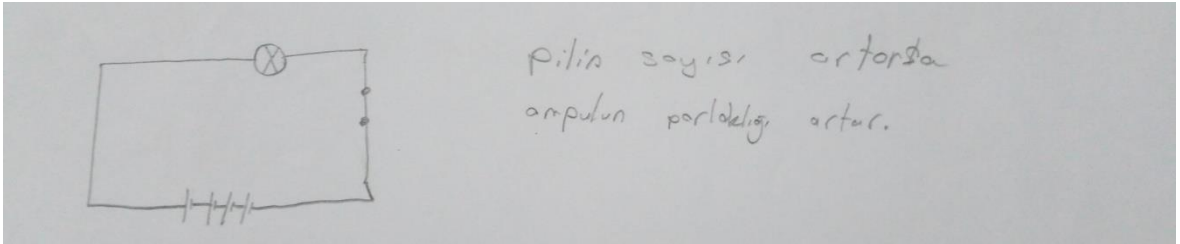 pilin sayısı artarsa
ampulun parlaklığı artar.